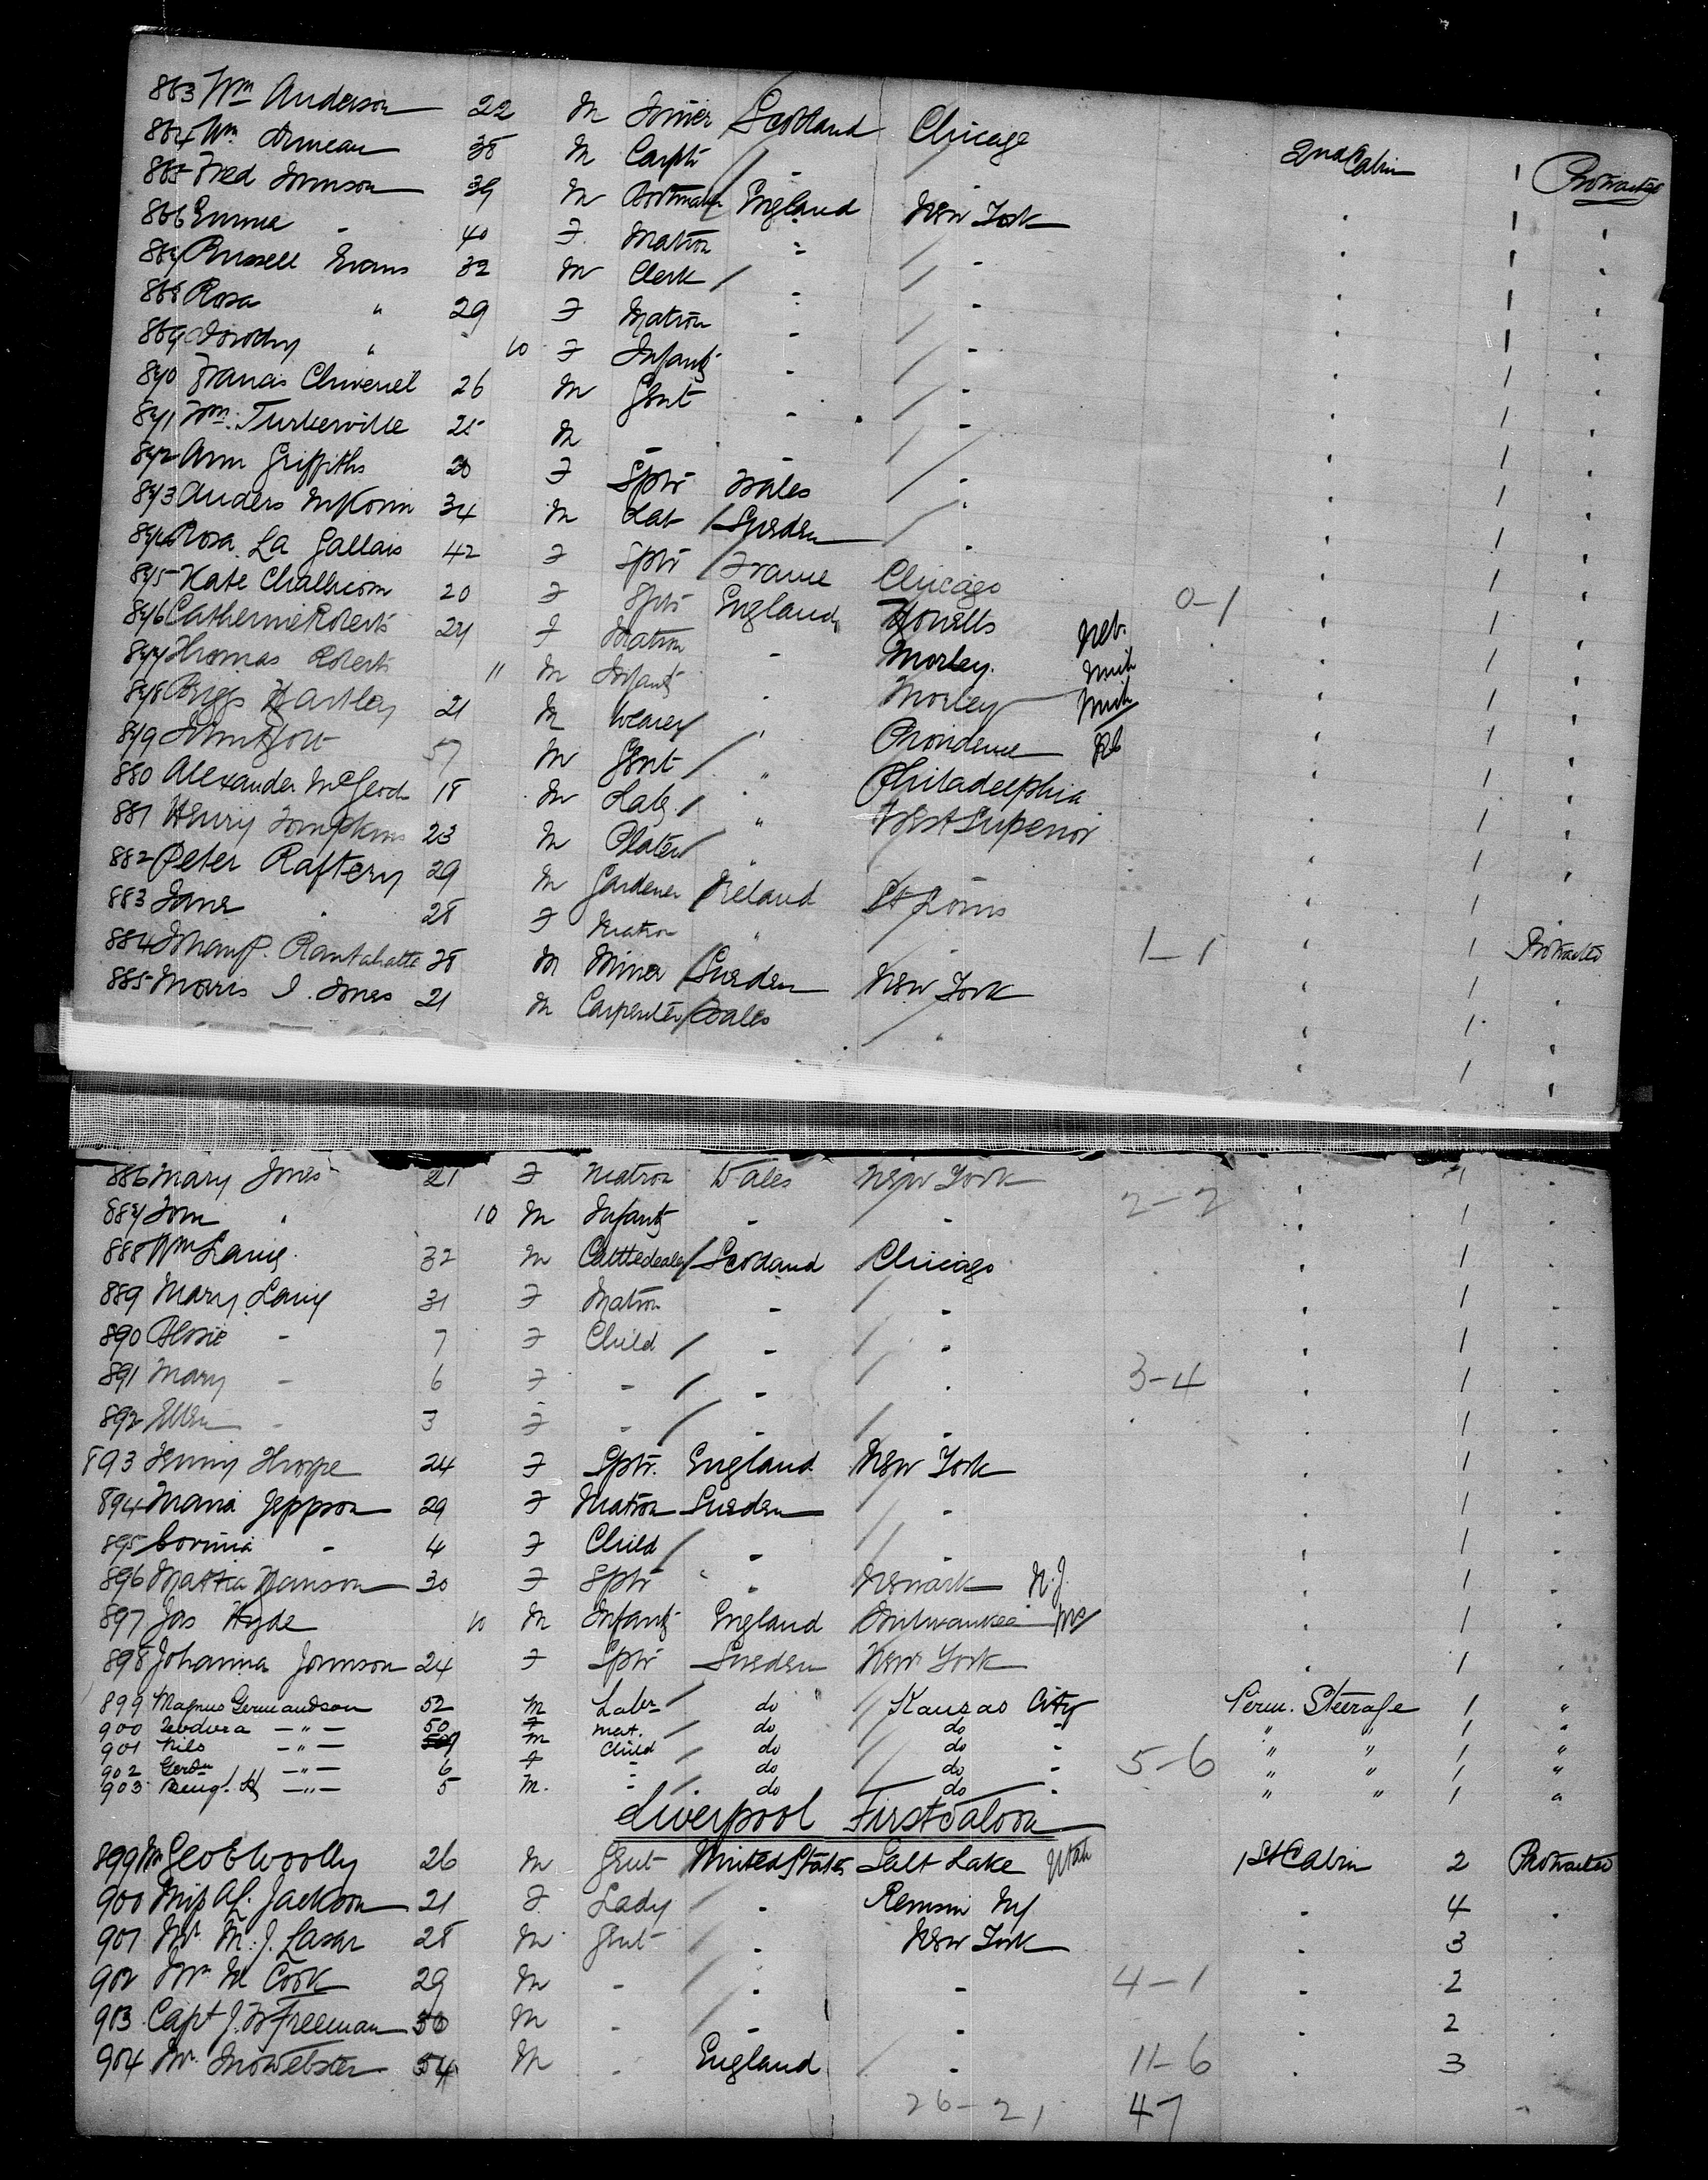 863 Wm Anderson 22 M Joiner Scotland Chicago 2nd Cabin 1 Protracted
864 Wm 38 M Carptr " / "
865 Fred Johnson 39 M England New York 1 "
866 Emma " 40 F Matron " / " 1 "
867 Russell Evans 32 M Clerk / " / " 1 "
868 Rosa " 29 F Matron " / " 1 "
869 Dorothy " 10 F Infant " / " 1 "
870 Francis 26 M Gent " / " 1 "
871 Wm Turberville 25 M " " / " 1 "
872 Ann Griffiths 20 F Sptr Wales / " 1 "
873 Anders 34 M Lab / Sweden / " 1 "
874 Rosa La Gallais 42 F Sptr / France Chicago 1 "
875 Kate 20 F Sptr England Howells Neb. 0-1 1 "
876 Catherine Roberts 24 F Matron " Morley Mich 1 "
877 Thomas Roberts 11 M Infant " Morley Mich 1 "
878 Briggs Hartley 21 M Weaver / " Providence RI 1 "
879 57 M Gent / " Philadelphia 1 "
880 Alexander McLeod 18 M Lab / " West Superior 1 "
881 Henry Tompkins 23 M Plater / " / 1 "
882 Peter Raftery 29 M Gardener Ireland St Louis 1 "
883 Jane " 28 F Matron " / " 1-1 1 Protracted
884 Johan P. 38 M Miner / Sweden New York 1 "
885 Morris I. Jones 21 M Carpenter / Wales / " 1 "
886 Mary Jones 21 F Matron Wales New York 2-2 1 "
887 Tom " 10 M Infant " " 1 "
888 Wm Laing 32 M Cattledealer / Scotland Chicago 1 "
889 Mary Laing 31 F Matron " / " 1 "
890 " 7 F Child / " / " 1 "
891 Mary " 6 F " / " / " 3-4 1 "
892 Ellen " 3 F " / " / " 1 "
893 Jenny Thorpe 24 F Sptr. England New York 1 "
894 Maria Jeppson 29 F Matron Sweden / " 1 "
895 " 4 F Child / " / " 1 "
896 Hanson 30 F Sptr " " Newark N.J. 1 "
897 Jas Hyde 10 M Infant England Milwaukee 1 "
898 Johanna Johnson 24 F Sptr Sweden New York 1 "
899 Magnus Germandson 52 M Labr / do " / Kansas City Perm. Steerage 1 "
900 — " — 50 F Mat. / do do " " " 1 "
901 Nils — " — M Child / do / do " 5-6 " " 1 "
902 — " — 6 F " / do / do " " " 1 "
903 — " — 5 M. " / do do " " " 1 "
Liverpool First Saloon
899 Mr Geo E Woolly 26 M Gent United States Salt Lake Utah 1st Cabin 2 Protracted
900 Miss A. Jackson 21 F Lady / " Remsen NY " 4 "
901 Mr M. J. Lasar 28 M Gent / " New York " 3
902 Mr M Cook 29 M " / " " 4-1 " 2
903 Capt J. W Freeman 36 M " / " " " 2
904 Mr Jno Webster 54 M " England / " 11-6 " 3
26-21 47